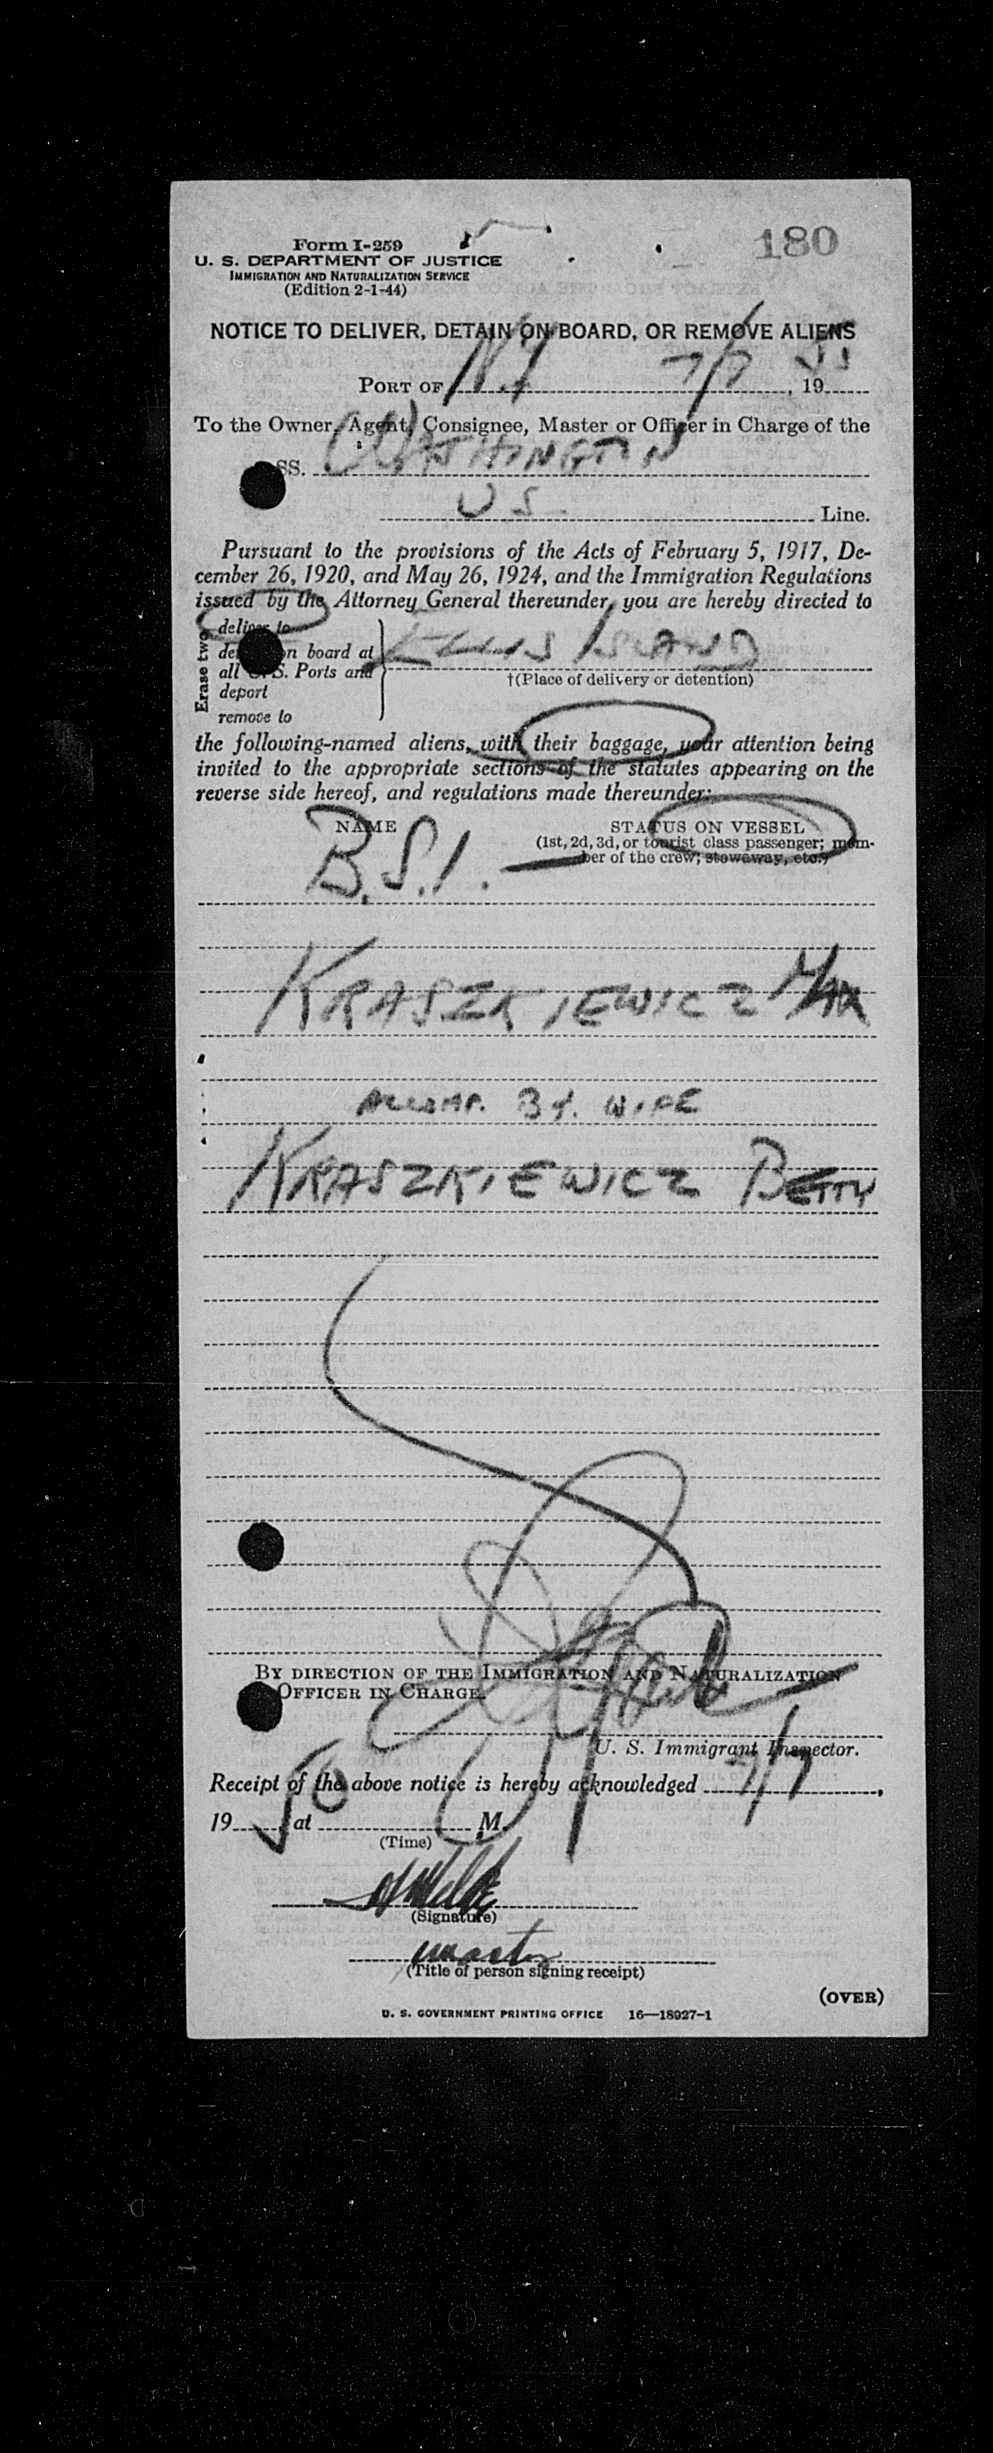 180
Form I-259
U. S. DEPARTMENT OF JUSTICE
IMMIGRATION AND NATURALIZATION SERVICE
(Edition 2-1-44)
NOTICE TO DELIVER, DETAIN ON BOARD, OR REMOVE ALIENS
PORT OF N.Y 7/7, 19
To the Owner, Agent, Consignee, Master or Officer in Charge of the
SS. WASHINGTON
US Line.
Pursuant to the provisions of the Acts of February 5, 1917, De-
cember 26, 1920, and May 26, 1924, and the Immigration Regulations
issued by the Attorney General thereunder, you are hereby directed to
Erase two
deliver to
on board at
all S. Ports and
deport
remove to
ELLIS ISLAND
†(Place of delivery or detention)
the following-named aliens, with their baggage, your attention being
invited to the appropriate sections of the statutes appearing on the
reverse side hereof, and regulations made thereunder:
NAME STATUS ON VESSEL
(1st, 2d, 3d, or tourist class passenger; mem-
ber of the crew; stowaway, etc.)
B.S.I.
KRASZKIEWICZ MAX
ACCOMP. BY. WIFE
KRASZKIEWICZ BETTY
BY DIRECTION OF THE IMMIGRATION AND NATURALIZATION
OFFICER IN CHARGE.
U. S. Immigrant Inspector.
Receipt of the above notice is hereby acknowledged 7/7,
19 50 at M.
(Time)
(Signature)
master
(Title of person signing receipt)
(OVER)
U. S. GOVERNMENT PRINTING OFFICE 16—18927-1